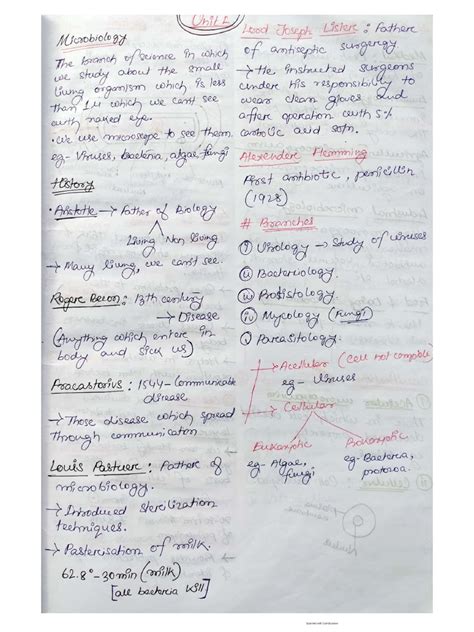 Unit 1
Microbiology
The branch of science in which
we study about the small
living organism which is less
than 1μ which we can't see
with naked eye.
• We use microscope to see them.
eg - Viruses, bacteria, algae, fungi
History
• Aristotle → Father of Biology
Living Non living
→ Many living, we can't see.
Rogere Becon : 13th century
→ Disease
(Anything which enters in
body and sick us)
Fracastorius : 1544 - Communicable
disease
→ Those disease which spread
through communication
Louis Pastuer : Father of
microbiology.
→ Introduced sterilization
techniques.
→ Pasterisation of milk.
62.8° - 30 min (milk)
[all bacteria kill]
Lord Joseph Listers : Father
of antiseptic surgergy
→ He instructed surgeons
under his responsibility to
wear clean gloves and
after operation with 5%
carbolic acid soln.
Alexendere Flemming
First antibiotic, penicillin
(1928)
# Branches
i) Virology → Study of viruses
ii) Bacteriology.
iii) Protistology.
iv) Mycology (Fungi)
v) Parasitology.
→ Acellular (Cell not complete)
eg - Viruses
→ Cellular
Eukaryotic Prokaryotic
eg - Algae, fungi
eg - Bacteria, protozoa.